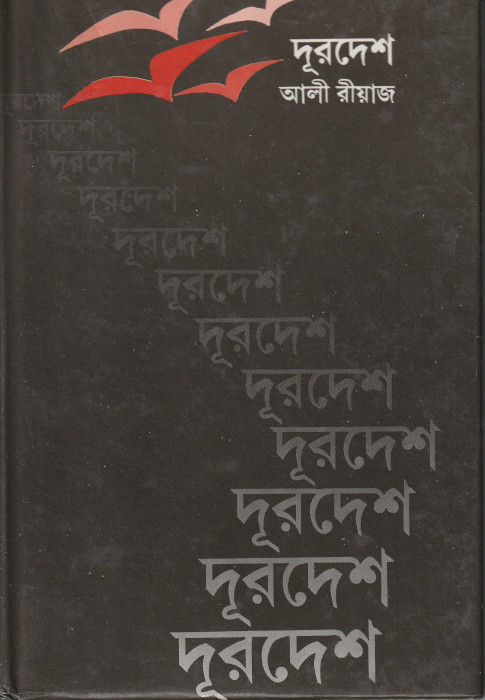 দূরদেশ
আলী রীয়াজ
দূরদেশ
দূরদেশ
দূরদেশ
দূরদেশ
দূরদেশ
দূরদেশ
দূরদেশ
দূরদেশ
দূরদেশ
দূরদেশ
দূরদেশ
দূরদেশ